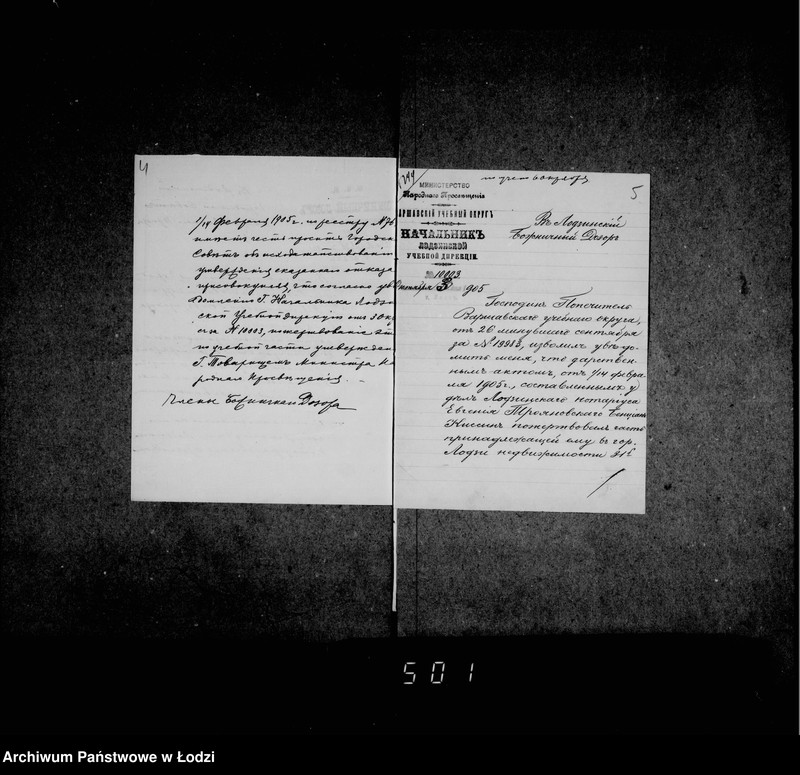 4
1/14 Февраля 1905 г. по реестру №
имеетъ честь просить Городск
Совѣтъ объ исходатайствованіи
утвержденія сказаннаго отказа
присовокупляя, что согласно ув
домленію Г. Начальника Лодз
ской Учебной дирекціи отъ 3 Ок
с/г № 10003, пожертвованіе
по учебной части утвержден
Г. Товарищемъ Министра На
роднаго Просвѣщенія.
Члены Божничнаго Дозора
5
МИНИСТЕРСТВО
Народнаго Просвѣщенія
ВАРШАВСКІЙ УЧЕБНЫЙ ОКРУГЪ
НАЧАЛЬНИКЪ
ЛОДЗИНСКОЙ
УЧЕБНОЙ ДИРЕКЦІИ.
№ 10003
Октября 3 1905
Въ Лодзинскій
Божничный Дозоръ
Господинъ Попечитель
Варшавскаго учебнаго округа,
отъ 26 минувшаго сентября
за № 19983, изволилъ увѣдо-
мить меня, что дарствен-
нымъ актомъ, отъ 1/14 февра-
ля 1905 г., составленнымъ у
дѣлъ Лодзинскаго нотаріуса
Евгенія Трояновскаго
пожертвовалъ часть
принадлежащей ему въ гор.
Лодзи недвижимости
501
Archiwum Państwowe w Łodzi